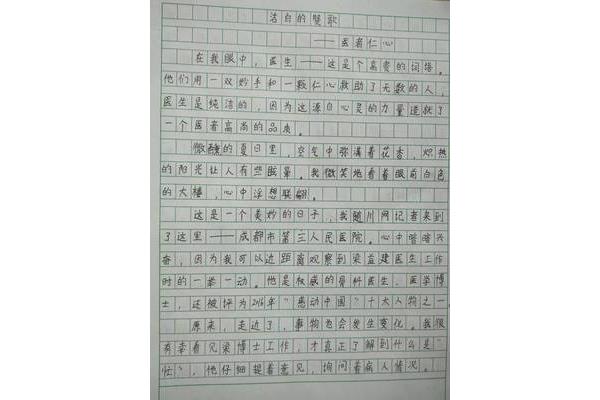 洁白的赞歌
——医者仁心
在我眼中，医生——这是个高贵的词语。
他们用一双妙手和一颗仁心救助了无数的人，
医生是纯洁的，因为这源自心灵的力量造就了
一个医者高尚的品质。
微醺的夏日里，空气中弥满着花香，炽热
的阳光让人有些眩晕。我微笑地看着眼前白色
的大楼，心中浮想联翩。
这是一个美妙的日子，我随川网记者来到
了这里——成都市第三人民医院。心中暗暗兴
奋，因为我可以近距离观察到梁益建医生工作
时的一举一动。他是权威的骨科医生、医学博
士，还被评为2016年“感动中国”十大人物之一
原来，走近了，事物也会发生变化。我很
有幸看见梁博士工作，才真正了解到什么是“
忙”，他仔细提着意见，询问着病人情况。